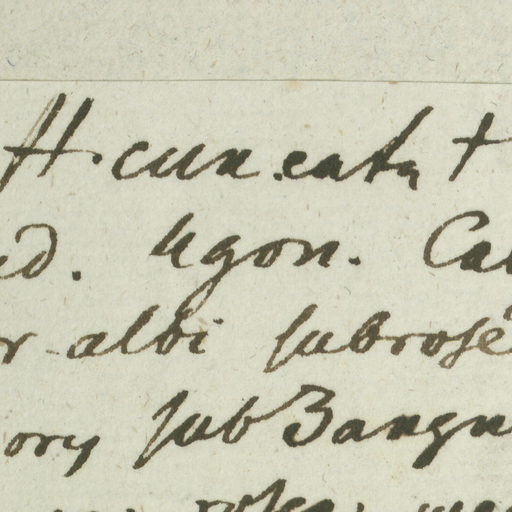 H. cuneata †
ed. Ugon. Cal
r albi subrose
ory sub 3angu